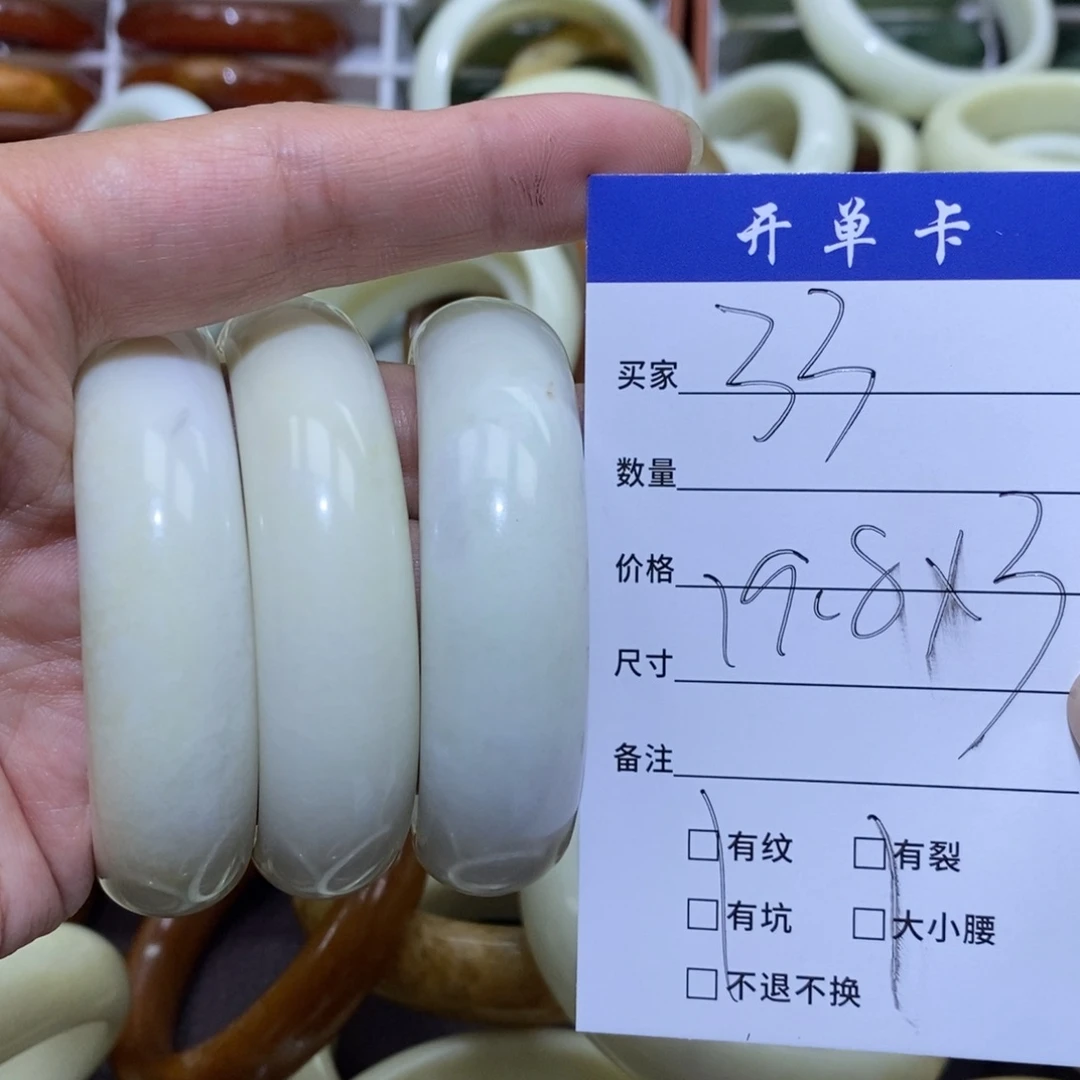 开单卡
买家 33
数量
价格 19.8x3
尺寸
备注
□有纹 □有裂
□有坑 □大小腰
□不退不换